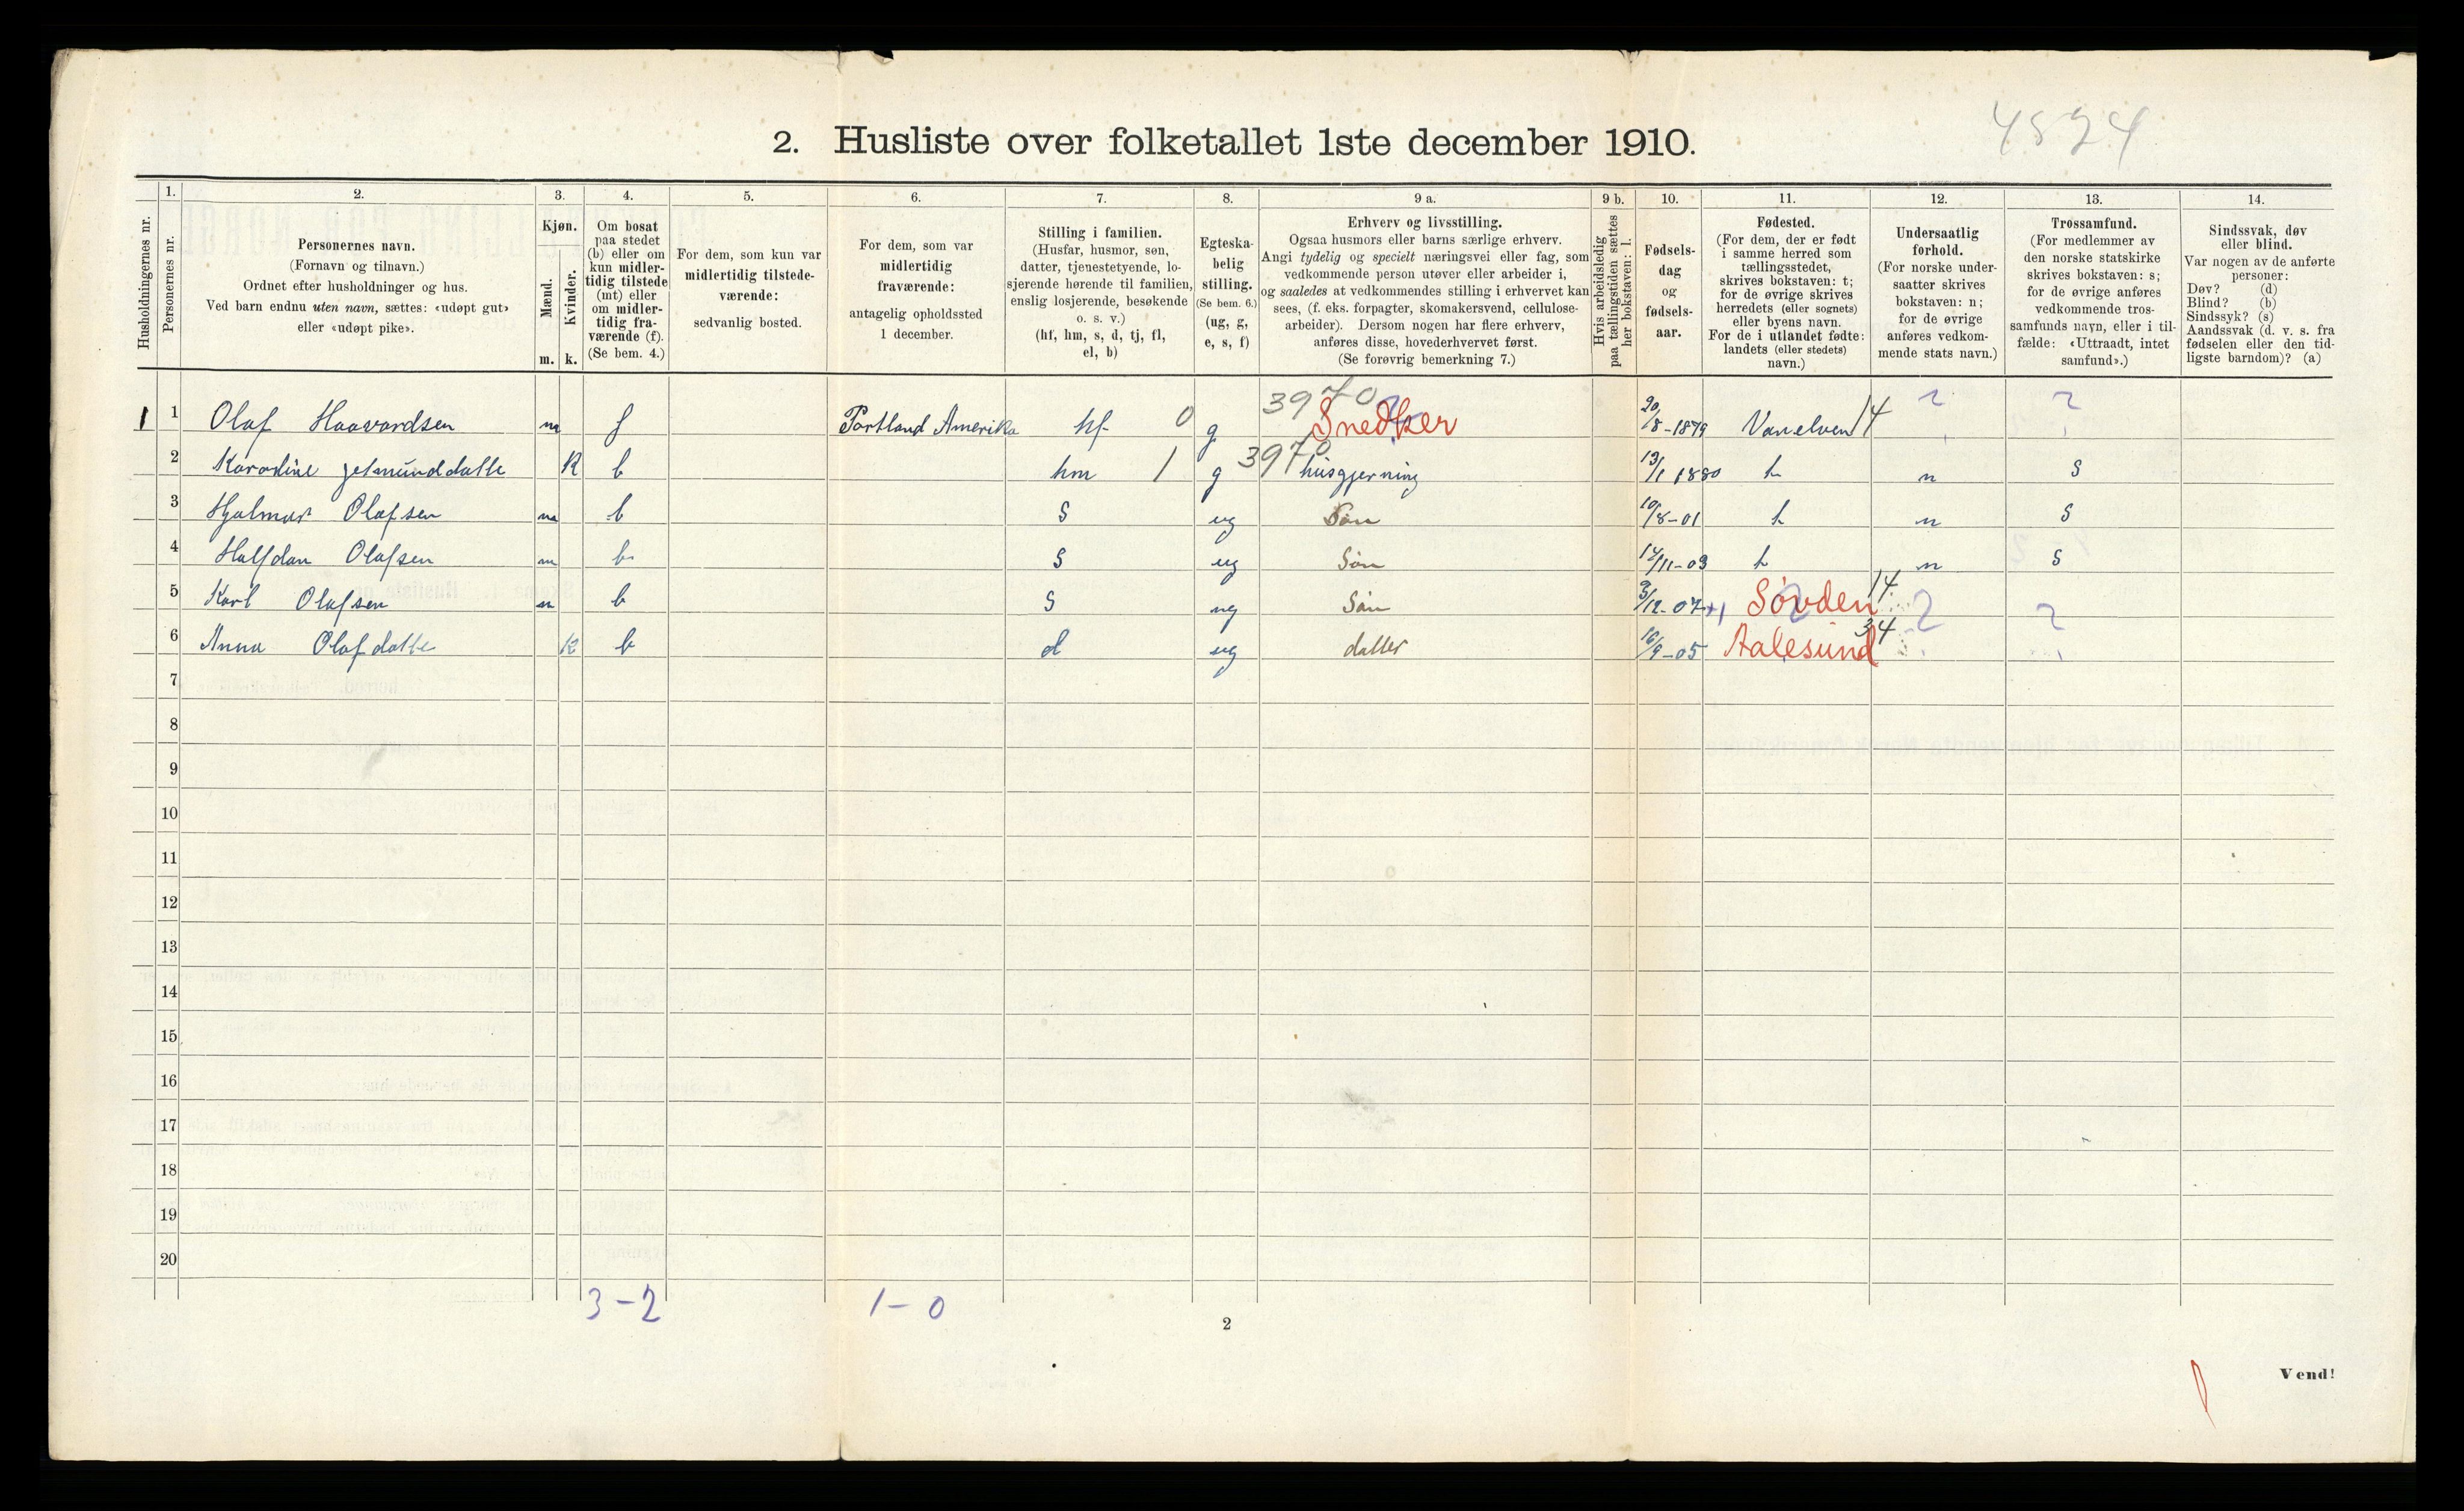 4824
2. Husliste over folketallet 1ste december 1910.
Husholdningernes nr.
1.
Personernes nr.
2.
Personernes navn.
(Fornavn og tilnavn.)
Ordnet efter husholdninger og hus.
Ved barn endnu uten navn, sættes: «udøpt gut»
eller «udøpt pike».
3.
Kjøn.
Mænd.
m.
Kvinder.
k.
4.
Om bosat
paa stedet
(b) eller om
kun midler-
tidig tilstede
(mt) eller
om midler-
tidig fra-
værende (f).
(Se bem. 4.)
5.
For dem, som kun var
midlertidig tilstede-
værende:
sedvanlig bosted.
6.
For dem, som var
midlertidig
fraværende:
antagelig opholdssted
1 december.
7.
Stilling i familien.
(Husfar, husmor, søn,
datter, tjenestetyende, lo-
sjerende hørende til familien,
enslig losjerende, besøkende
o. s. v.)
(hf, hm, s, d, tj, fl,
el, b)
8.
Egteska-
belig
stilling.
(Se bem. 6.)
(ug, g,
e, s, f)
9 a.
Erhverv og livsstilling.
Ogsaa husmors eller barns særlige erhverv.
Angi tydelig og specielt næringsvei eller fag, som
vedkommende person utøver eller arbeider i,
og saaledes at vedkommendes stilling i erhvervet kan
sees, (f. eks. forpagter, skomakersvend, cellulose-
arbeider). Dersom nogen har flere erhverv,
anføres disse, hovederhvervet først.
(Se forøvrig bemerkning 7.)
9 b.
Hvis arbeidsledig
paa tællingstiden sættes
her bokstaven: l.
10.
Fødsels-
dag
og
fødsels-
aar.
11.
Fødested.
(For dem, der er født
i samme herred som
tællingsstedet,
skrives bokstaven: t;
for de øvrige skrives
herredets (eller sognets)
eller byens navn.
For de i utlandet fødte:
landets (eller stedets)
navn.)
12.
Undersaatlig
forhold.
(For norske under-
saatter skrives
bokstaven: n;
for de øvrige
anføres vedkom-
mende stats navn.)
13.
Trossamfund.
(For medlemmer av
den norske statskirke
skrives bokstaven: s;
for de øvrige anføres
vedkommende tros-
samfunds navn, eller i til-
fælde: «Uttraadt, intet
samfund».)
14.
Sindssvak, døv
eller blind.
Var nogen av de anførte
personer:
Døv? (d)
Blind? (b)
Sindssyk? (s)
Aandssvak (d. v. s. fra
fødselen eller den tid-
ligste barndom)? (a)
1 1 Olaf Haavardsen m f Portland Amerika hf 0 g 3970 Snedker 20/8-1879 Vanelven 14
2 Karoline K b hm 1 g 3970 husgjerning 13/1 1880 t n s
3 Hjalmar Olafsen m b s ug Søn 10/8-01 t n s
4 Halfdan Olafsen m b s ug Søn 14/11-03 t n s
5 Karl Olafsen m b s ug Søn 3/12-07 Søvden 14
6 Anna Olafdatte K b d ug datter 16/9-05 Aalesund 34
7
8
9
10
11
12
13
14
15
16
17
18
19
20
3-2 1-0
2
Vend!